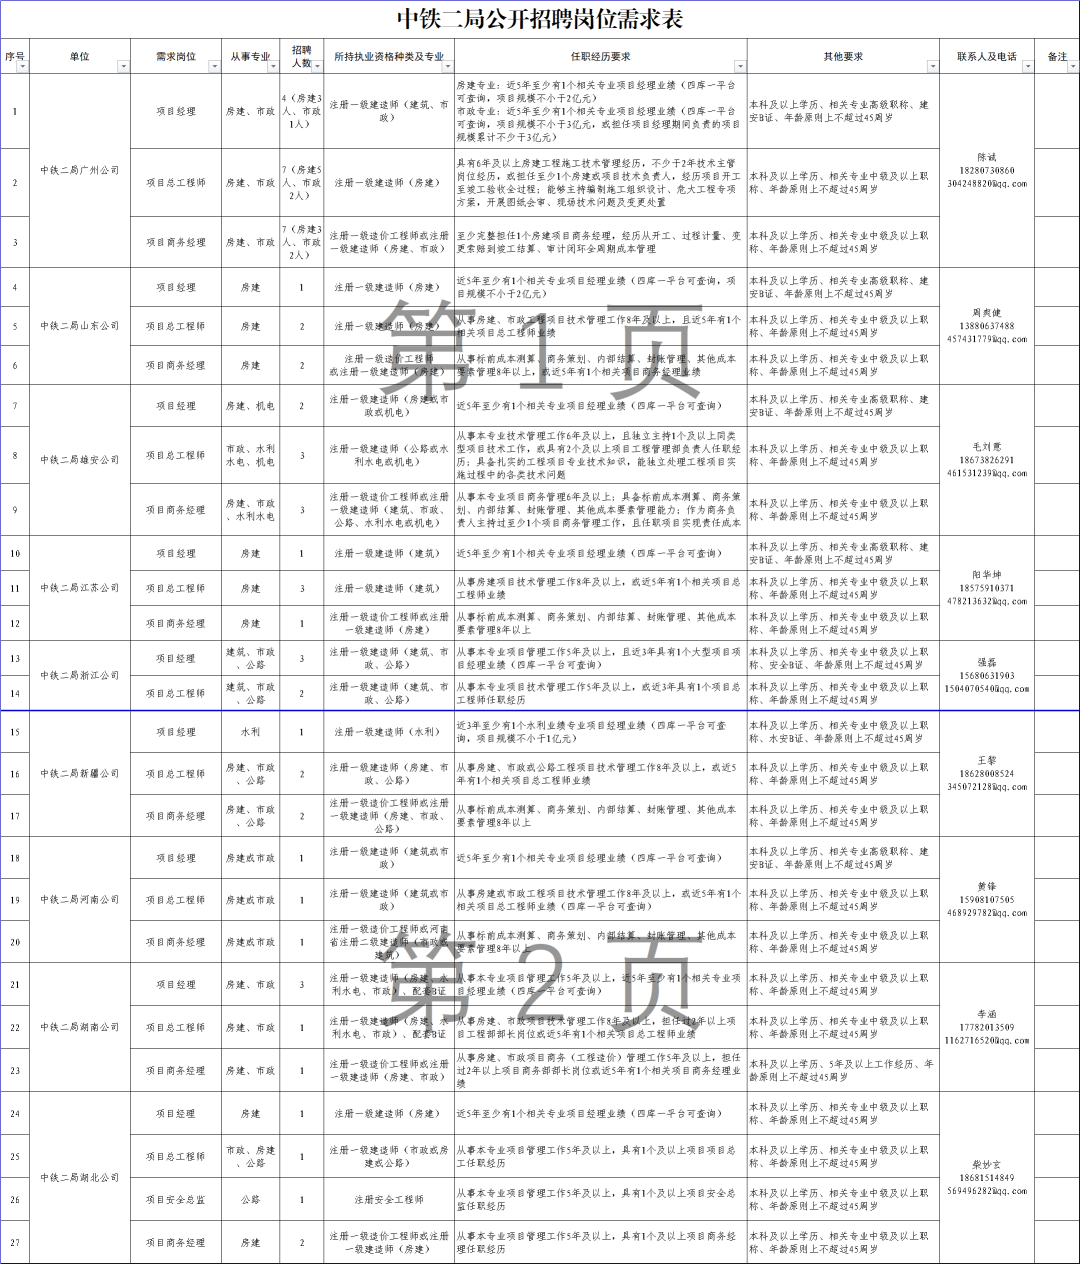 中铁二局公开招聘岗位需求表
序号 单位 需求岗位 从事专业 招聘人数 所持执业资格种类及专业 任职经历要求 其他要求 联系人及电话 备注
1 中铁二局广州公司 项目经理 房建、市政 4（房建3人、市政1人） 注册一级建造师（建筑、市政） 房建专业：近5年至少有1个相关专业项目经理业绩（四库一平台可查询，项目规模不小于2亿元）
市政专业：近5年至少有1个相关专业项目经理业绩（四库一平台可查询，项目规模不小于3亿元，或担任项目经理期间负责的项目规模累计不少于3亿元） 本科及以上学历、相关专业高级职称、建安B证、年龄原则上不超过45周岁 陈诚
18280730860
304248820@qq.com
2 项目总工程师 房建、市政 7（房建5人、市政2人） 注册一级建造师（房建） 具有6年及以上房建工程施工技术管理经历，不少于2年技术主管岗位经历，或担任至少1个房建或项目技术负责人，经历项目开工至竣工验收全过程；能够主持编制施工组织设计、危大工程专项方案，开展图纸会审、现场技术问题及变更处置 本科及以上学历、相关专业中级及以上职称、年龄原则上不超过45周岁
3 项目商务经理 房建、市政 7（房建3人、市政2人） 注册一级造价工程师或注册一级建造师（房建、市政） 至少完整担任1个房建项目商务经理，经历从开工、过程计量、变更索赔到竣工结算、审计闭环全周期成本管理 本科及以上学历、相关专业中级及以上职称、年龄原则上不超过45周岁
4 中铁二局山东公司 项目经理 房建 1 注册一级建造师（房建） 近5年至少有1个相关专业项目经理业绩（四库一平台可查询，项目规模不小于2亿元） 本科及以上学历、相关专业高级职称、建安B证、年龄原则上不超过45周岁 周爽健
13880637488
457431779@qq.com
5 项目总工程师 房建 2 注册一级建造师（房建） 从事房建、市政工程项目技术管理工作8年及以上，且近5年有1个相关项目总工程师业绩 本科及以上学历、相关专业中级及以上职称、年龄原则上不超过45周岁
6 项目商务经理 房建 2 注册一级造价工程师或注册一级建造师（房建） 从事标前成本测算、商务策划、内部结算、封账管理、其他成本要素管理8年以上，或近5年有1个相关项目商务经理业绩 本科及以上学历、相关专业中级及以上职称、年龄原则上不超过45周岁
第 1 页
7 中铁二局雄安公司 项目经理 房建、机电 2 注册一级建造师（房建或市政或机电） 近5年至少有1个相关专业项目经理业绩（四库一平台可查询） 本科及以上学历、相关专业高级职称、建安B证、年龄原则上不超过45周岁 毛刘憙
18673826291
461531239@qq.com
8 项目总工程师 市政、水利水电、机电 3 注册一级建造师（公路或水利水电或机电） 从事本专业技术管理工作6年及以上，且独立主持1个及以上同类型项目技术工作，或具有2个及以上项目工程管理部负责人任职经历；具备扎实的工程项目专业技术知识，能独立处理工程项目实施过程中的各类技术问题 本科及以上学历、相关专业中级及以上职称、年龄原则上不超过45周岁
9 项目商务经理 房建、市政、水利水电 3 注册一级造价工程师或注册一级建造师（建筑、市政、公路、水利水电或机电） 从事本专业项目商务管理6年及以上；具备标前成本测算、商务策划、内部结算、封账管理、其他成本要素管理能力；作为商务负责人主持过至少1个项目商务管理工作，且任职项目实现责任成本 本科及以上学历、相关专业中级及以上职称、年龄原则上不超过45周岁
10 中铁二局江苏公司 项目经理 房建 1 注册一级建造师（建筑） 近5年至少有1个相关专业项目经理业绩（四库一平台可查询） 本科及以上学历、相关专业高级职称、建安B证、年龄原则上不超过45周岁 阳华坤
18575910371
478213632@qq.com
11 项目总工程师 房建 3 注册一级建造师（建筑） 从事房建项目技术管理工作8年及以上，或近5年有1个相关项目总工程师业绩 本科及以上学历、相关专业中级及以上职称、年龄原则上不超过45周岁
12 项目商务经理 房建 1 注册一级造价工程师或注册一级建造师（房建） 从事标前成本测算、商务策划、内部结算、封账管理、其他成本要素管理8年以上 本科及以上学历、相关专业中级及以上职称、年龄原则上不超过45周岁
13 中铁二局浙江公司 项目经理 建筑、市政、公路 3 注册一级建造师（建筑、市政、公路） 从事本专业项目管理工作5年及以上，且近3年具有1个大型项目项目经理业绩（四库一平台可查询） 本科及以上学历、相关专业中级及以上职称、安全B证、年龄原则上不超过45周岁 强磊
15680631903
1504070540@qq.com
14 项目总工程师 建筑、市政、公路 2 注册一级建造师（建筑、市政、公路） 从事本专业项目技术管理工作5年及以上，或近3年具有1个项目总工程师任职经历 本科及以上学历、相关专业中级及以上职称、年龄原则上不超过45周岁
15 中铁二局新疆公司 项目经理 水利 1 注册一级建造师（水利） 近3年至少有1个水利业绩专业项目经理业绩（四库一平台可查询，项目规模不小于1亿元） 本科及以上学历、相关专业中级及以上职称、水安B证、年龄原则上不超过45周岁 王黎
18628008524
345072128@qq.com
16 项目总工程师 房建、市政、公路 2 注册一级建造师（房建、市政、公路） 从事房建、市政或公路工程项目技术管理工作8年及以上，或近5年有1个相关项目总工程师业绩 本科及以上学历、相关专业中级及以上职称、年龄原则上不超过45周岁
17 项目商务经理 房建、市政、公路 2 注册一级造价工程师或注册一级建造师（房建、市政、公路） 从事标前成本测算、商务策划、内部结算、封账管理、其他成本要素管理8年以上 本科及以上学历、相关专业中级及以上职称、年龄原则上不超过45周岁
18 中铁二局河南公司 项目经理 房建或市政 1 注册一级建造师（建筑或市政） 近5年至少有1个相关专业项目经理业绩（四库一平台可查询） 本科及以上学历、相关专业高级职称、建安B证、年龄原则上不超过45周岁 黄锋
15908107505
468929782@qq.com
19 项目总工程师 房建或市政 1 注册一级建造师（建筑或市政） 从事房建或市政工程项目技术管理工作8年及以上，或近5年有1个相关项目总工程师业绩（四库一平台可查询） 本科及以上学历、相关专业中级及以上职称、年龄原则上不超过45周岁
20 项目商务经理 房建或市政 1 注册一级造价工程师或河南省注册二级建造师（市政或建筑） 从事标前成本测算、商务策划、内部结算、封账管理、其他成本要素管理8年以上 本科及以上学历、相关专业中级及以上职称、年龄原则上不超过45周岁
第 2 页
21 中铁二局湖南公司 项目经理 房建、市政 3 注册一级建造师（房建、水利水电、市政）、配套B证 从事本专业项目管理工作5年及以上，近5年至少有1个相关专业项目经理业绩（四库一平台可查询） 本科及以上学历、相关专业中级及以上职称、年龄原则上不超过45周岁 李涵
17782013509
1162716520@qq.com
22 项目总工程师 房建、市政 1 注册一级建造师（房建、水利水电、市政）、配套B证 从事房建、市政项目技术管理工作8年及以上，担任过2年以上项目工程部部长岗位或近5年有1个相关项目总工程师业绩 本科及以上学历、相关专业中级及以上职称、年龄原则上不超过45周岁
23 项目商务经理 房建、市政 1 注册一级造价工程师或注册一级建造师（房建、市政） 从事房建、市政项目商务（工程造价）管理工作5年及以上，担任过2年以上项目商务部部长岗位或近5年有1个相关项目商务经理业绩 本科及以上学历、5年及以上工作经历、年龄原则上不超过45周岁
24 中铁二局湖北公司 项目经理 房建 1 注册一级建造师（房建） 近5年至少有1个相关专业项目经理业绩（四库一平台可查询） 本科及以上学历、相关专业中级及以上职称、年龄原则上不超过45周岁 柴妙玄
18681514849
569496282@qq.com
25 项目总工程师 市政、房建、公路 1 注册一级建造师（市政或房建或公路） 从事本专业项目管理工作5年及以上，具有1个及以上项目项目总工任职经历 本科及以上学历、相关专业中级及以上职称、年龄原则上不超过45周岁
26 项目安全总监 公路 1 注册安全工程师 从事本专业项目管理工作5年及以上，具有1个及以上项目安全总监任职经历 本科及以上学历、相关专业中级及以上职称、年龄原则上不超过45周岁
27 项目商务经理 房建 2 注册一级造价工程师或注册一级建造师（房建） 从事本专业项目管理工作5年及以上，具有1个及以上项目商务经理任职经历 本科及以上学历、相关专业中级及以上职称、年龄原则上不超过45周岁